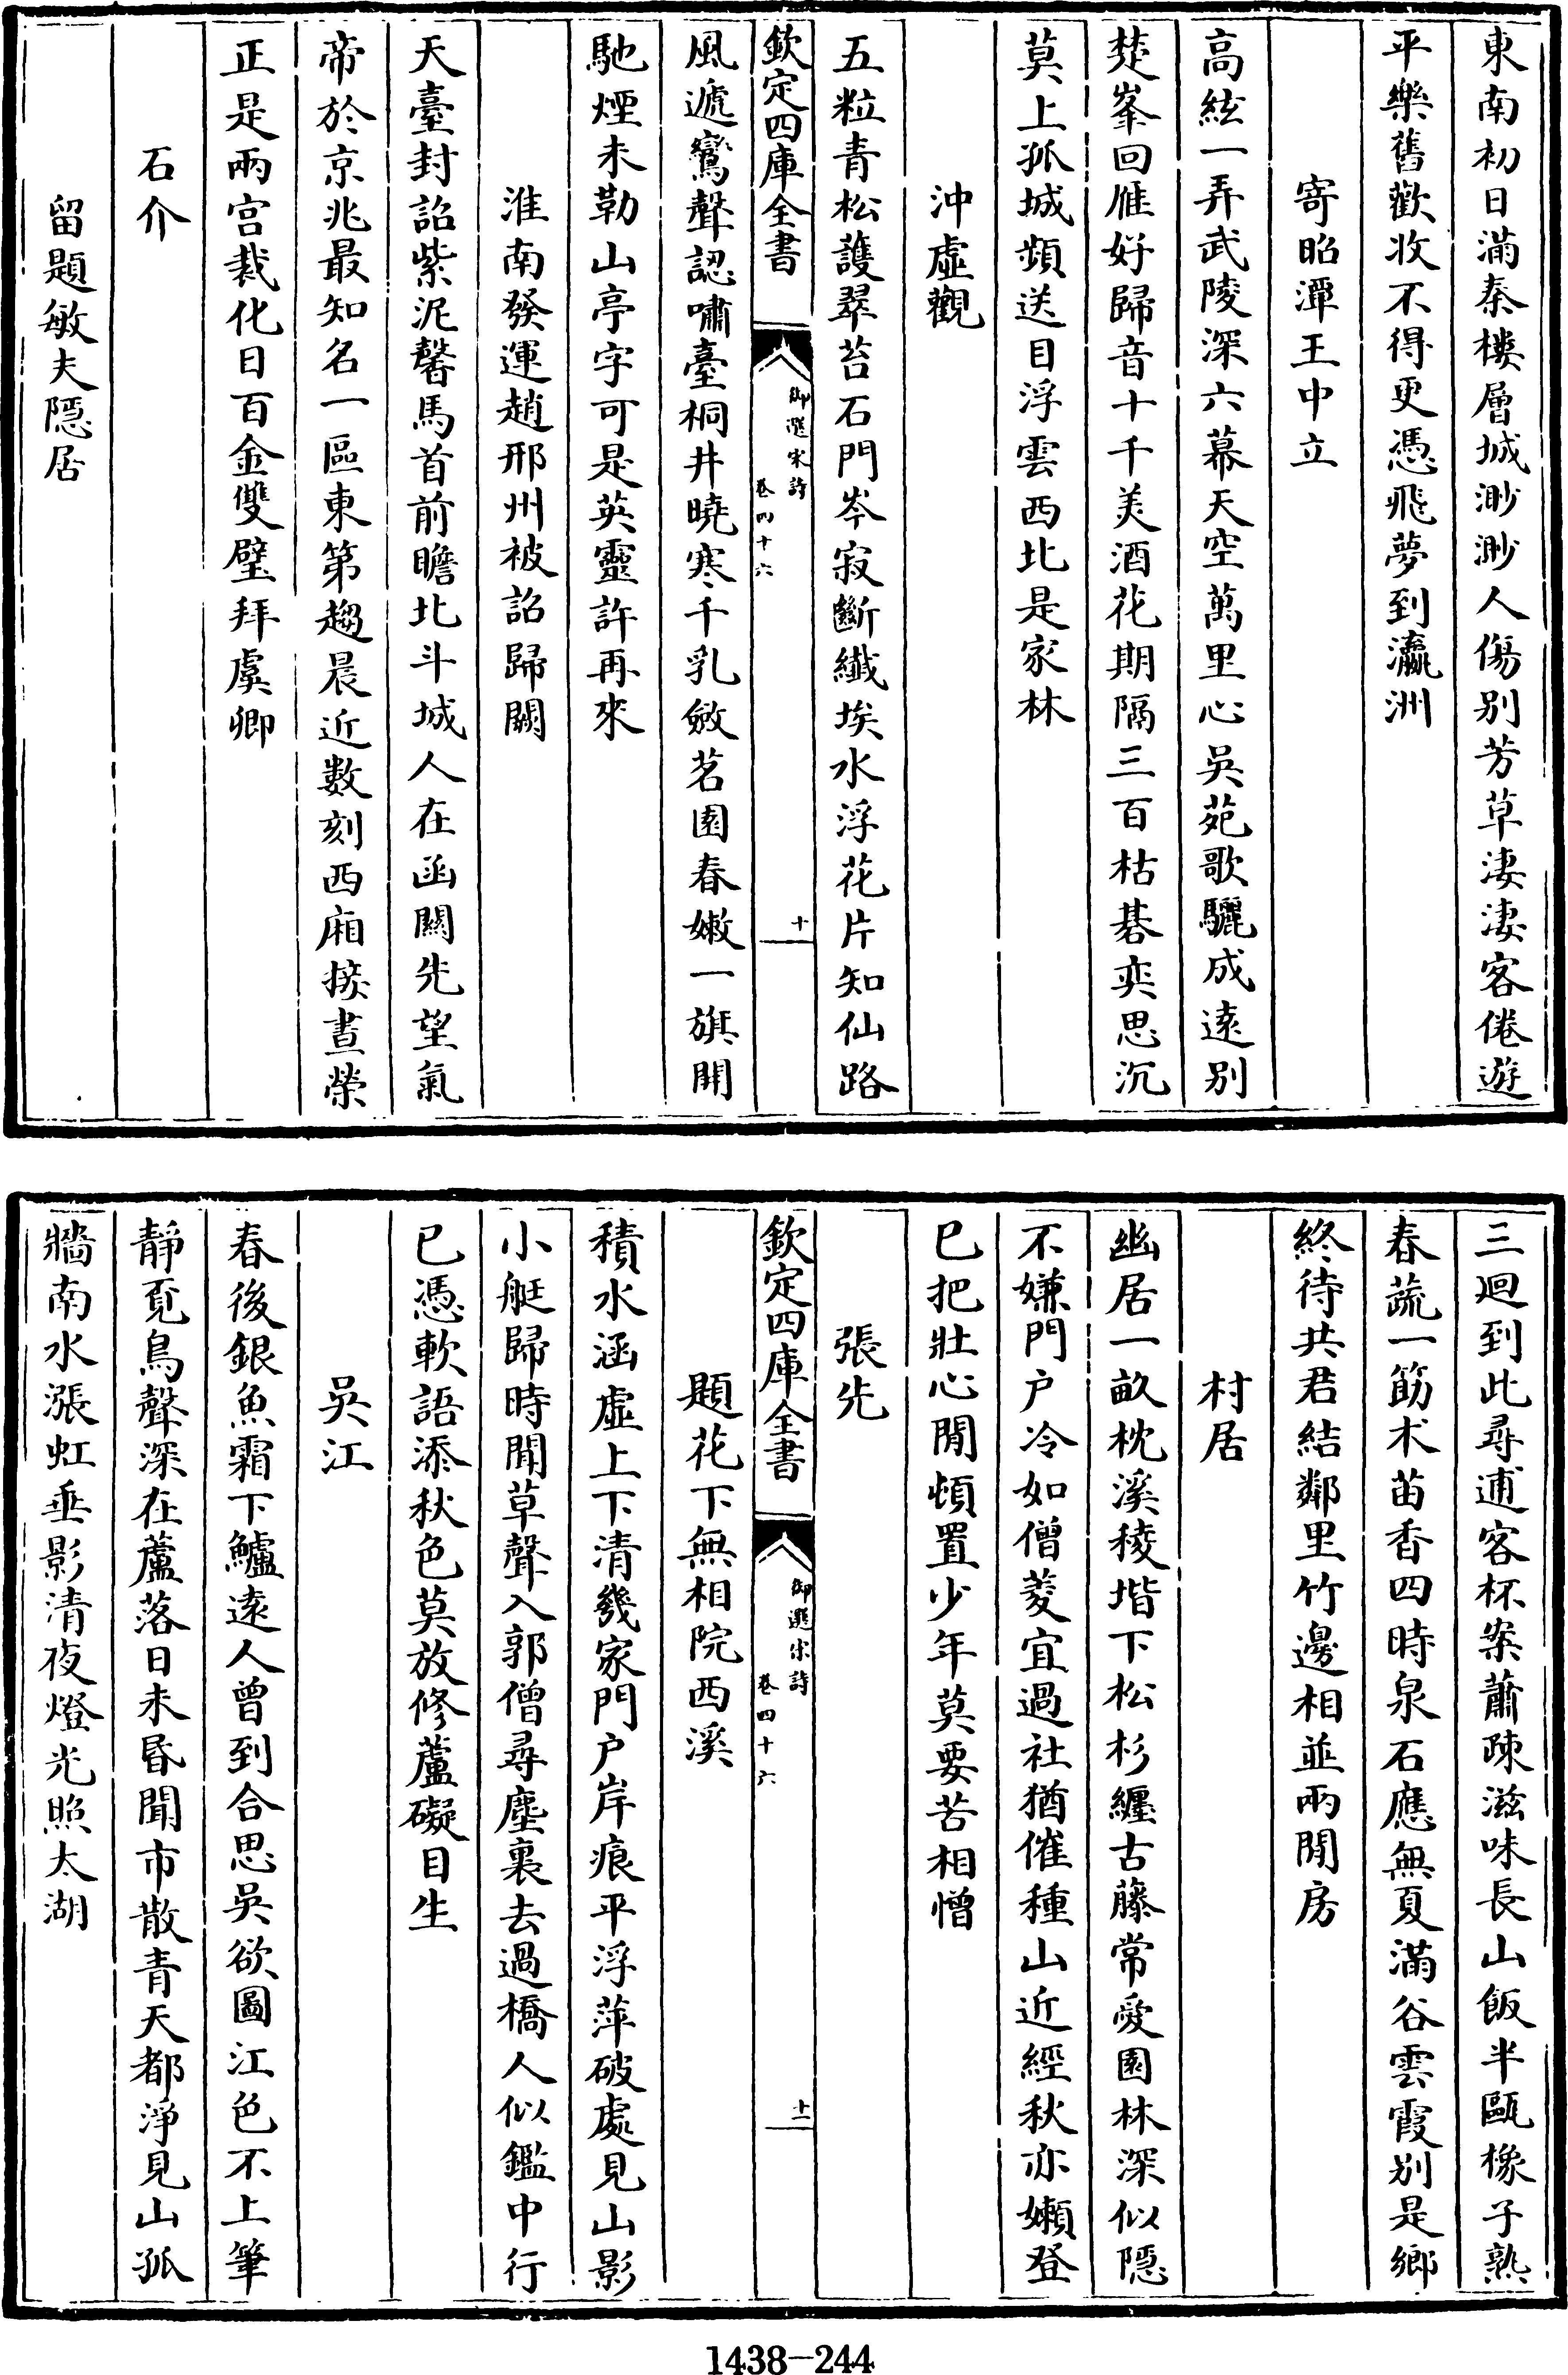 東南初日滿秦樓層城渺渺人傷別芳草淒淒客倦遊
平樂舊歡收不得更憑飛夢到瀛洲
寄昭潭王中立
高絃一弄武陵深六幕天空萬里心吳苑歌驪成遠别
楚峯回雁好歸音十千美酒花期隔三百枯碁奕思沉
莫上孤城頻送目浮雲西北是家林
沖虛觀
五粒青松護翠苔石門岑寂斷纖埃水浮花片知仙路
欽定四庫全書
御選宋詩
卷四十六
十
風遞鸞聲認嘯臺桐井曉寒千乳斂茗園春嫩一旗開
馳煙未勒山亭字可是英靈許再來
淮南發運趙邢州被詔歸闕
天臺封詔紫泥馨馬首前瞻北斗城人在函關先望氣
帝於京兆最知名一區東第趨晨近數刻西廂接晝榮
正是兩宮裁化日百金雙璧拜虞卿
石介
留題敏夫隱居
三迴到此尋逋客杯案蕭疎滋味長山飯半甌橡子熟
春蔬一筯朮苗香四時泉石應無夏滿谷雲霞别是鄉
終待共君結鄰里竹邊相並兩閒房
村居
幽居一畝枕溪稜堦下松杉纏古藤常愛園林深似隱
不嫌門户冷如僧菱宜過社猶催種山近經秋亦嬾登
已把壯心閒頓置少年莫要苦相憎
張先
欽定四庫全書
御選宋詩
卷四十六
十一
題花下無相院西溪
積水涵虛上下清幾家門户岸痕平浮萍破處見山影
小艇歸時聞草聲入郭僧尋塵裏去過橋人似鑑中行
已憑軟語添秋色莫放修蘆礙目生
吳江
春後銀魚霜下鱸遠人曾到合思吳欲圖江色不上筆
靜覓鳥聲深在蘆落日未昏聞市散青天都淨見山孤
牆南水漲虹垂影清夜燈光照太湖
1438—244